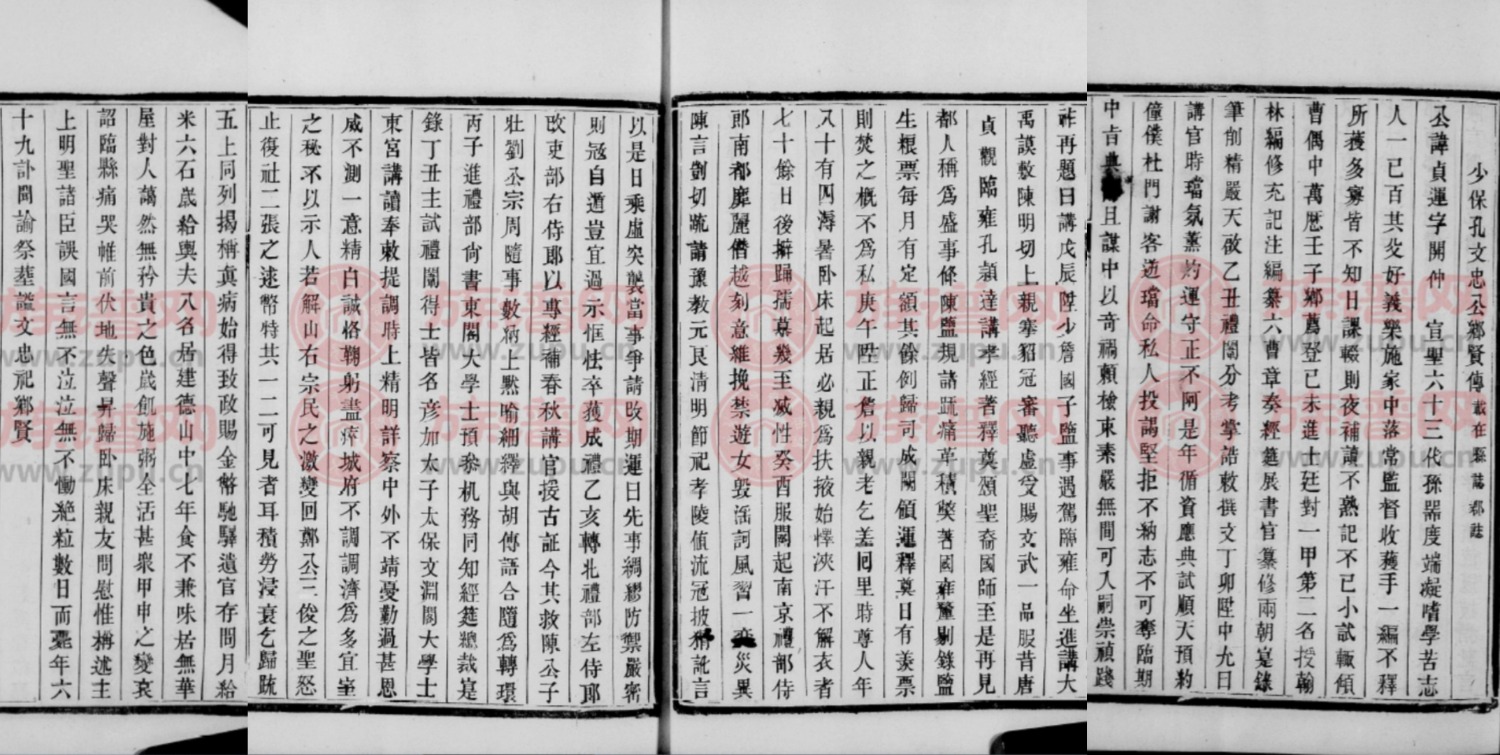 少保孔文忠公鄉賢傳載在縣誌郡誌
公諱貞運字開仲 宣聖六十三代孫器度端凝嗜學苦志
人一已百其父好義樂施家中落常監督收穫手一編不釋
所獲多寡皆不知日課輟則夜補讀不熟記不已小試輒傾
曹偶中萬曆壬子鄉薦登已未進士廷對一甲第二名授翰
林編修充記注編纂六曹章奏經筵展書官纂修兩朝寔錄
筆削精嚴天啟乙丑禮闈分考掌誥敕撰文丁卯陞中允日
講官時璫氛薰灼運守正不阿是年循資應典試順天預約
僮僕杜門謝客逆璫命私人投謁堅拒不納志不可奪臨期
中旨典 且謀中以奇禍賴檢束素嚴無間可入嗣崇禎踐
祚再題日講戊辰陞少詹國子監事遇駕臨雍命坐進講大
禹謨敷陳明切上親搴貂冠審聽虛受賜文武一品服昔唐
貞觀臨雍孔潁達講孝經著釋奠頌聖裔國師至是再見
都人稱為盛事條陳監規諸疏痛革積獘著國雍釐剔錄監
生根票每月有定額其餘例歸司成闌領運釋奠日有羨票
則焚之概不為私庚午陞正詹以親老乞差回里時尊人年
八十有四溽暑卧床起居必親為扶掖始懌浹汗不解衣者
七十餘日後擗踊孺慕幾至滅性癸酉服闋起南京禮部侍
郎南都靡麗僭越刻意維挽禁遊女毀滛祠風習一變災異
陳言剴切疏請豫教元良淸明節祀孝陵值流冦披猖訛言
以是日乘虛突襲當事爭請改期運日先事綢繆防禦嚴密
則冦自遁豈宜過示恇怯卒獲成禮乙亥轉北禮部左侍郎
改吏部右侍郎以專經補春秋講官援古証今其救陳公子
壯劉公宗周隨事敷納上黙喻細繹與胡傳語合隨為轉環
丙子進禮部尚書東閣大學士預叅机務同知經筵總裁寔
錄丁丑主試禮闈得士皆名彦加太子太保文淵閣大學士
東宮講讀奉敕提調時上精明詳察中外不靖憂勤過甚恩
威不測一意精白誠恪鞠躬盡瘁城府不調調濟為多宜室
之秘不以示人若解山右宗民之激變回鄭公三俊之聖怒
止復社二張之逮幣特共一二可見者耳積勞浸衰乞歸疏
五上同列揭稱眞病始得致政賜金幣馳驛遣官存問月給
米六石歲給輿夫八名居建德山中七年食不兼味居無華
屋對人藹然無矜貴之色歲飢施粥全活甚眾甲申之變哀
詔臨縣痛哭帷前伏地失聲舁歸卧床親友問慰惟稱述主
上明聖諸臣誤國言無不泣泣無不慟絶粒數日而薨年六
十九訃聞諭祭塟謚文忠祀鄉賢